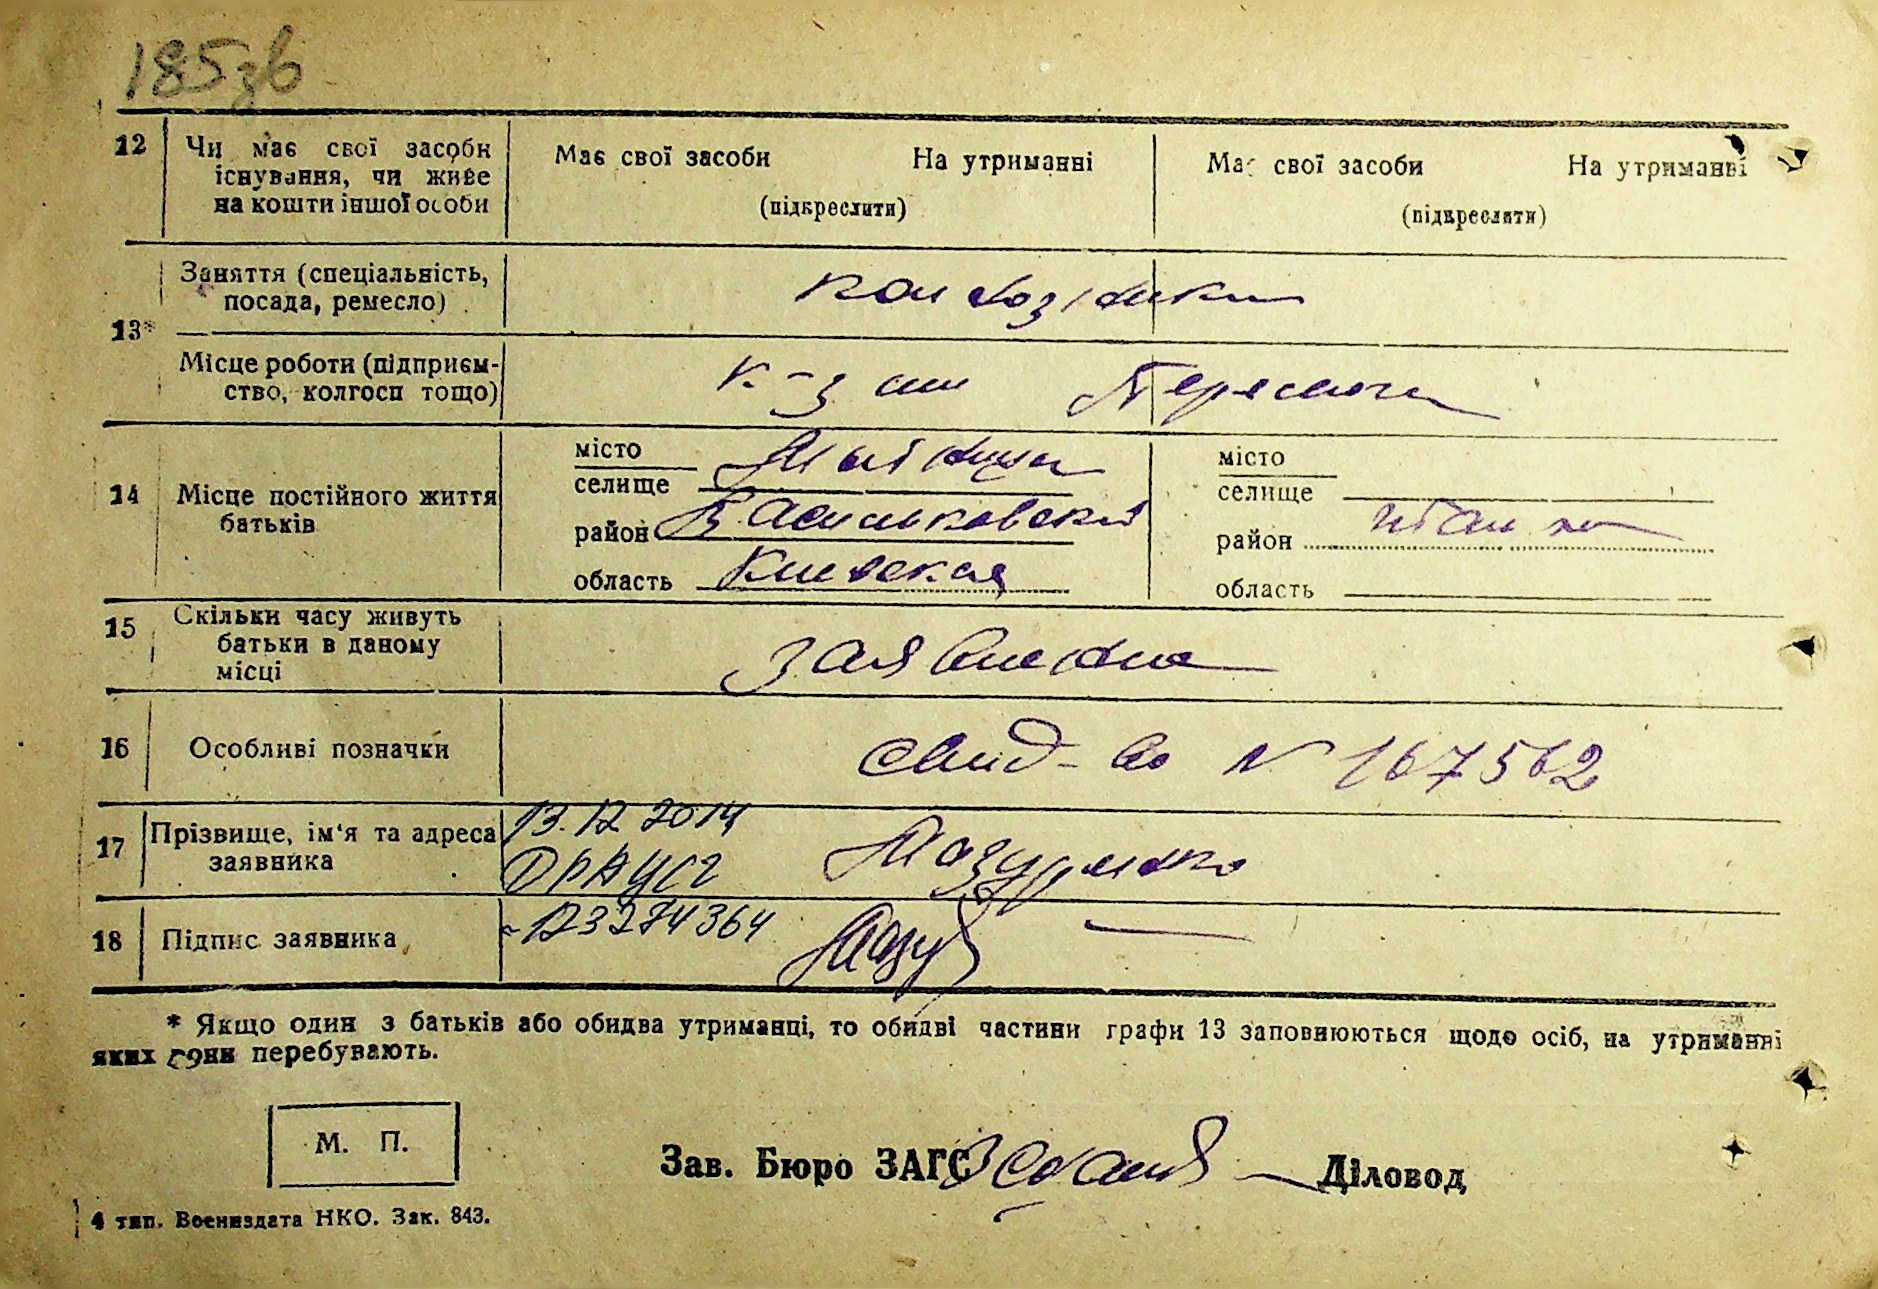 185зв
12 Чи має свої засоби Має свої засоби На утриманні Має свої засоби На утриманні
існування, чи живе
на кошти іншої особи (підкреслити) (підкреслити)
Заняття (спеціальність,
посада, ремесло)
13*
Місце роботи (підприєм-
ство, колгосп тощо) к-з им
14 Місце постійного життя
батьків
місто
селище
район Васильковский
область Киевская
місто
селище
район
область
15 Скільки часу живуть
батьки в даному
місці
16 Особливі позначки свид-во N 167562
17 Прізвище, ім'я та адреса
заявника
13.12.2014
ДРАЦСГ
Мазуренко
18 Підпис заявника
-123274364
* Якщо один з батьків або обидва утриманці, то обидві частини графи 13 заповнюються щодо осіб, на утриманні
яких вони перебувають.
М. П.
Зав. Бюро ЗАГС Діловод
4 тип. Воениздата НКО. Зак. 843.